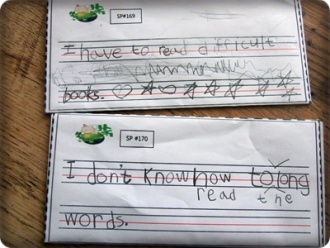 SP#169
I have to read difficult
books.
SP #170
I don't know how to long
read the
words.